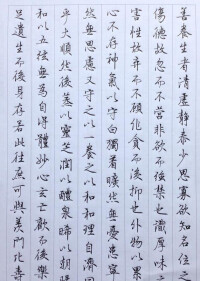 善養生者清虛静泰少思寡欲知名位之
傷德故忽而不營非欲而強禁也識厚味之
害性故弃而不顧非貪而後抑也外物以累
心不存神氣以守白獨著曠然無憂患寂
然無思慮又守之以一養之以和和理日濟同
乎大順然後蒸以靈芝潤以醴泉晞以朝陽
和以五弦無為自得體妙心玄亡歡而後樂
足遺生而後身存若此往庶可與羡門比壽